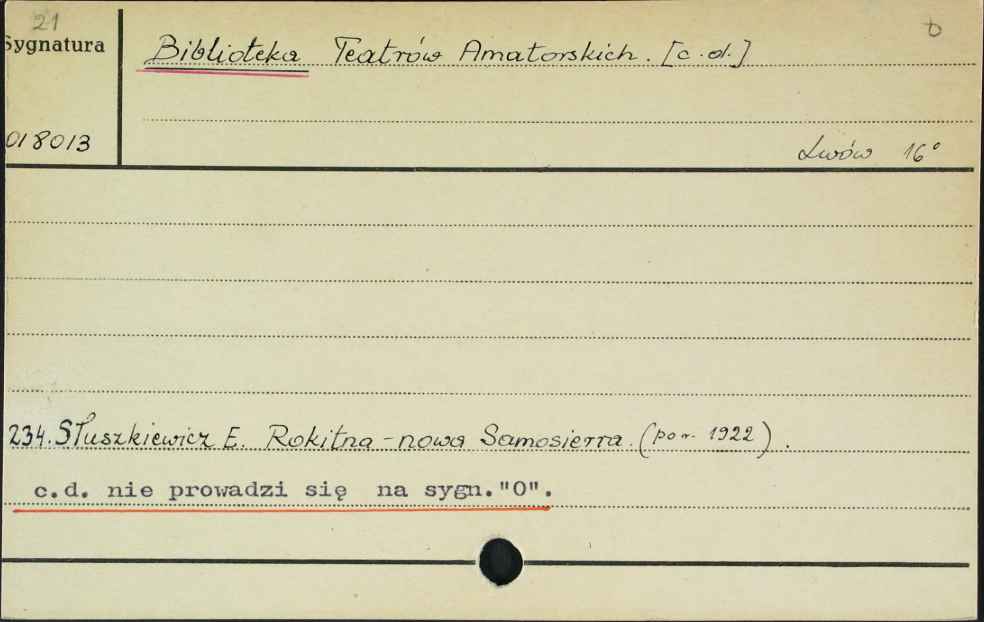 21
Sygnatura
Biblioteka Teatrów Amatorskich. [c.d.]
018013
Lwów 16°
234. Słuszkiewicz E. Rokitna - nowa Samosierra. (por. 1922).
c.d. nie prowadzi się na sygn."O".